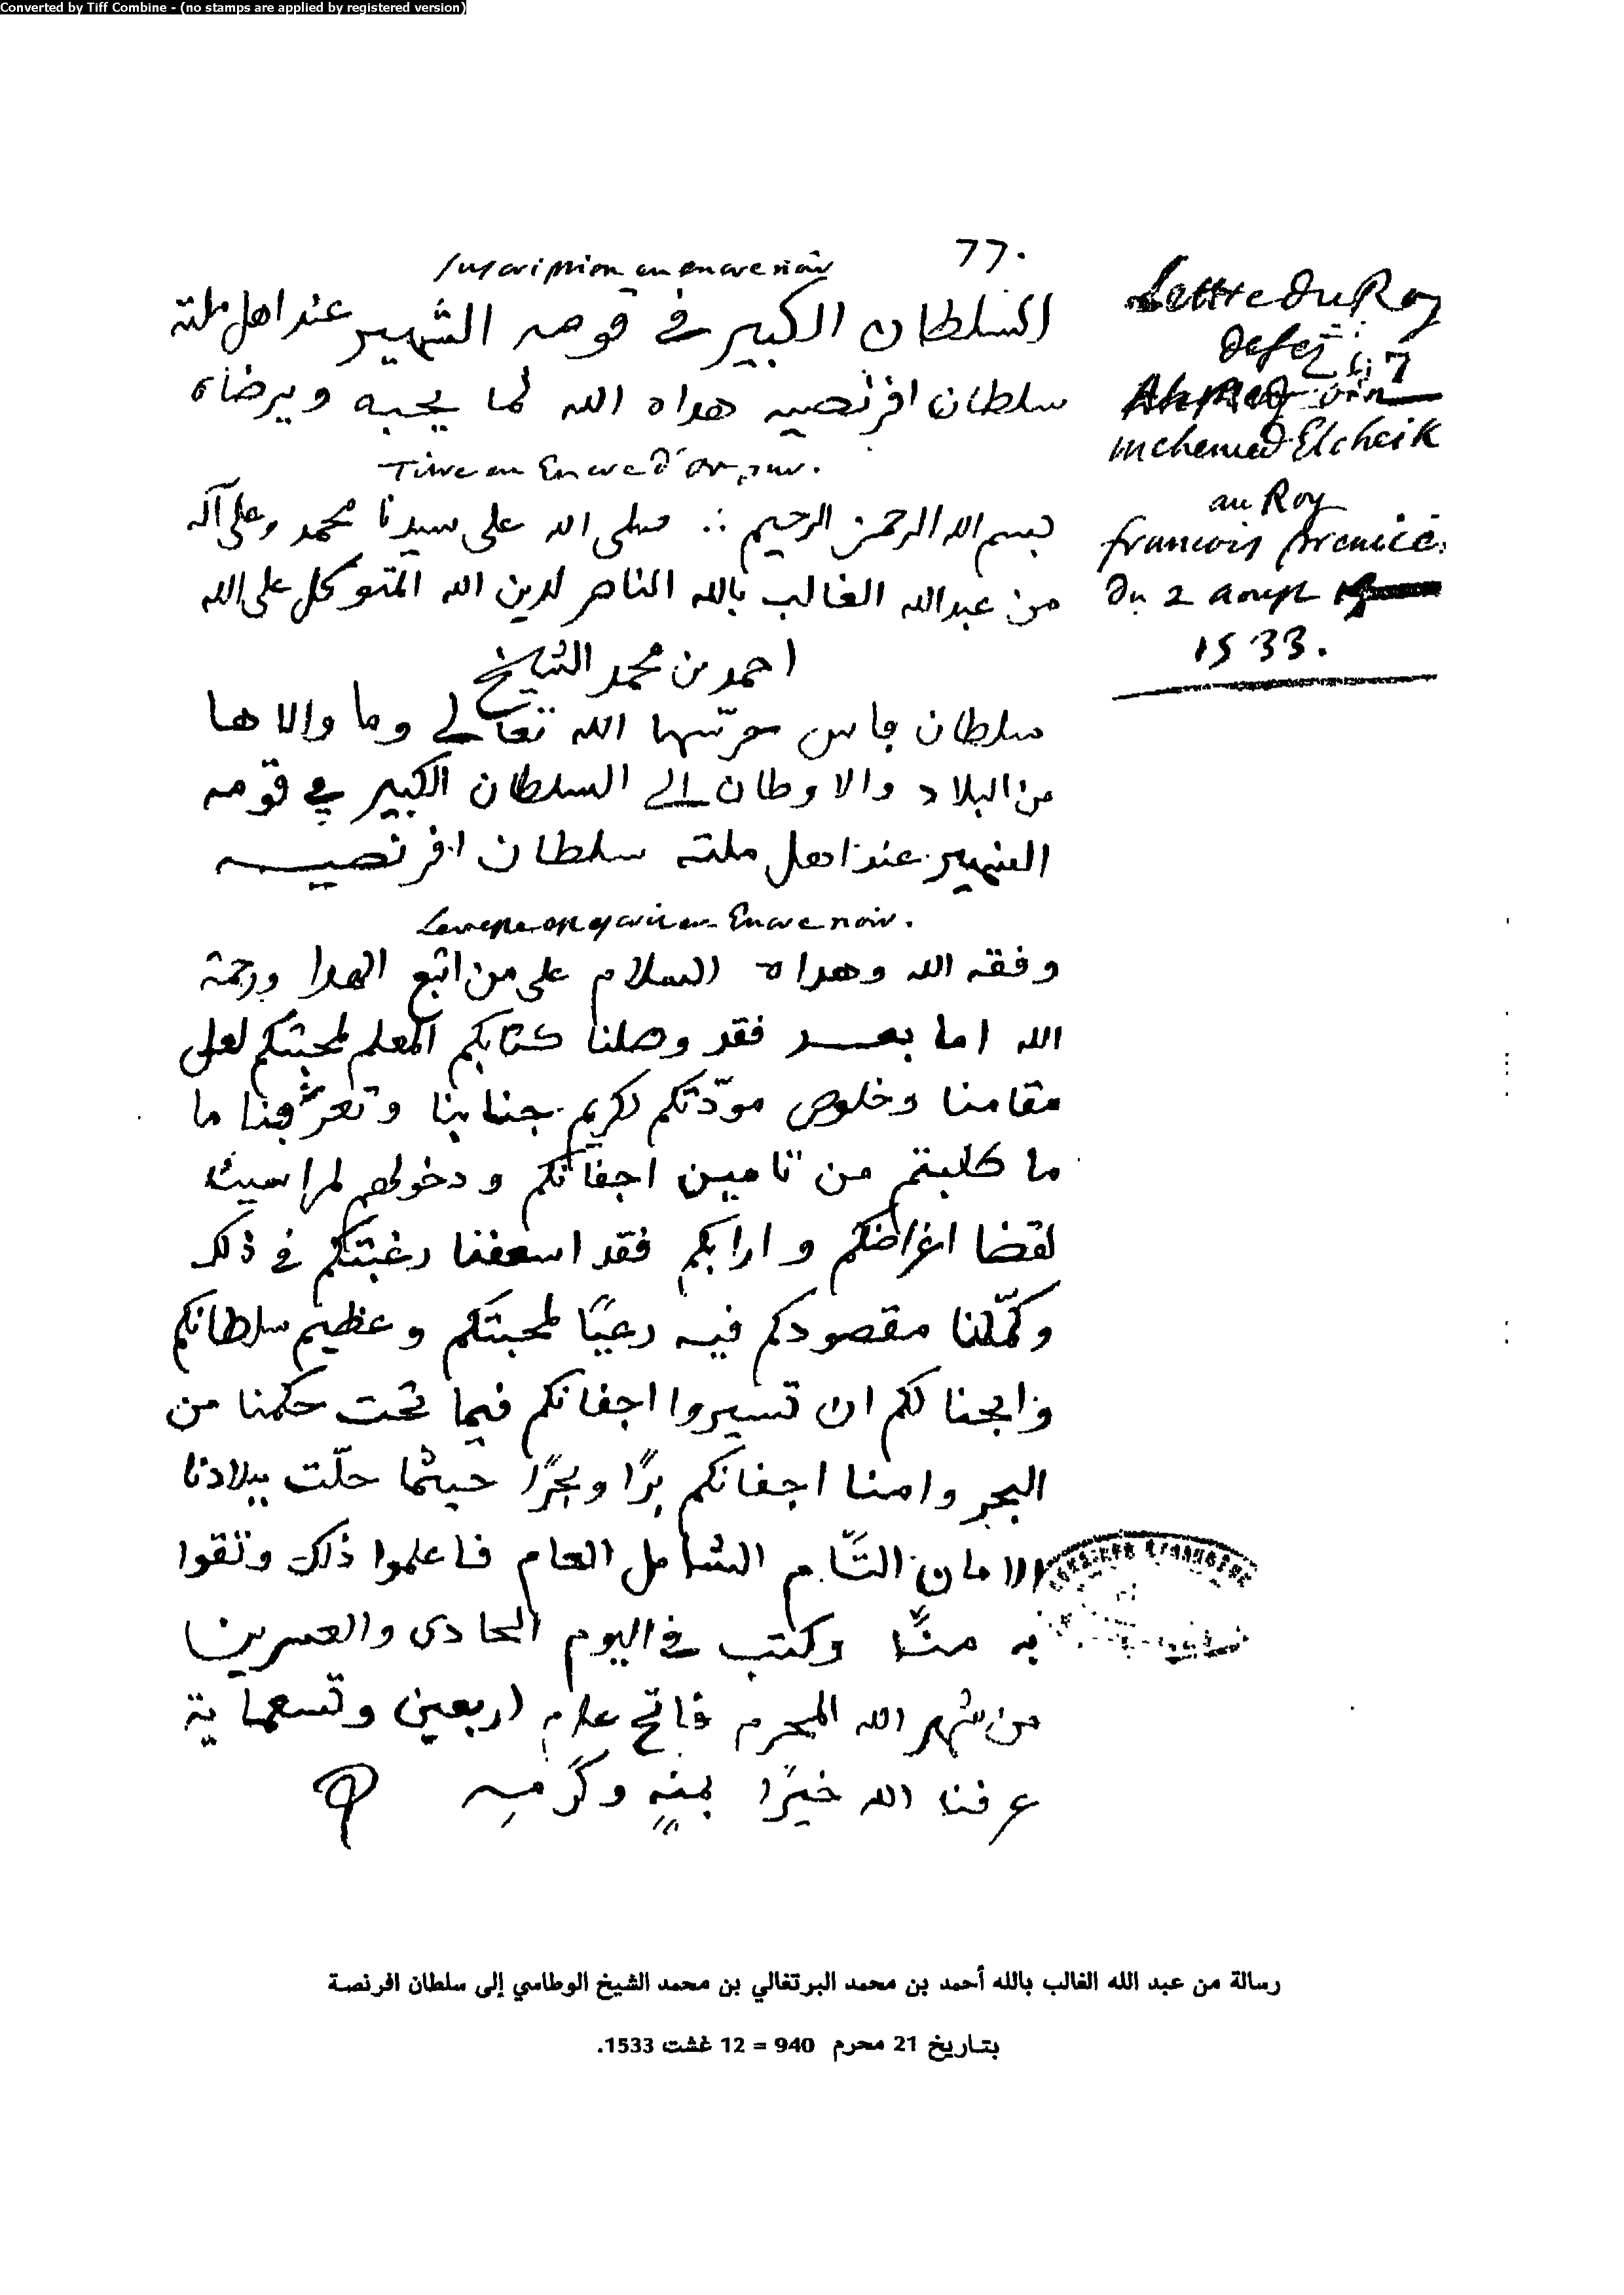 Converted by Tiff Combine - (no stamps are applied by registered version)
77.
Suscription en encre noir
السلطان الكبير في قومه الشهير عند اهل ملته
سلطان افرنصيه هداه الله لما يحبه ويرضاه
Titre en Encre d'or pur.
بسم الله الرحمن الرحيم ∴ صلى الله على سيدنا محمد وعلى آله
من عبد الله الغالب بالله الناصر لدين الله المتوكل على الله
احمد بن محمد الشيخ
سلطان فاس حرسها الله تعالى وما والاها
من البلاد والاوطان الى السلطان الكبير في قومه
الشهير عند اهل ملته سلطان افرنصيه
Encre noir.
وفقه الله وهداه السلام على من اتبع الهدا ورحمة
الله اما بعد فقد وصلنا كتابكم المعلم لمحبتكم لعلى
مقامنا وخلوص مودّتكم لكريم جنابنا وتعرّفنا ما
ما طلبتم من تامين اجفانكم ودخولهم لمراسينا
لقضا اغراضكم وارابكم فقد اسعفنا رغبتكم في ذلك
وكمّلنا مقصودكم فيه رعيًا لمحبتكم وعظيم سلطانكم
وابحنا لكم ان تسيروا اجفانكم فيما تحت حكمنا من
البحر وامنا اجفانكم برًا وبحرًا حيثما حلّت ببلادنا
الامان التّام الشامل العام فاعلموا ذلك وثقوا
به منّا وكتب في اليوم الحادى والعسرين
من شهر الله المحرم فاتح عام اربعين وتسعماية
عرفنا الله خيرًا بمنهِ وكرمهِ
Lettre du Roy
de fez
Ahmed ben
mehemed Elcheik
au Roy
francois premier
du 2 aoust
1533.
رسالة من عبد الله الغالب بالله أحمد بن محمد البرتغالي بن محمد الشيخ الوطاسي إلى سلطان افرنصة
بتاريخ 21 محرم 940 = 12 غشت 1533.